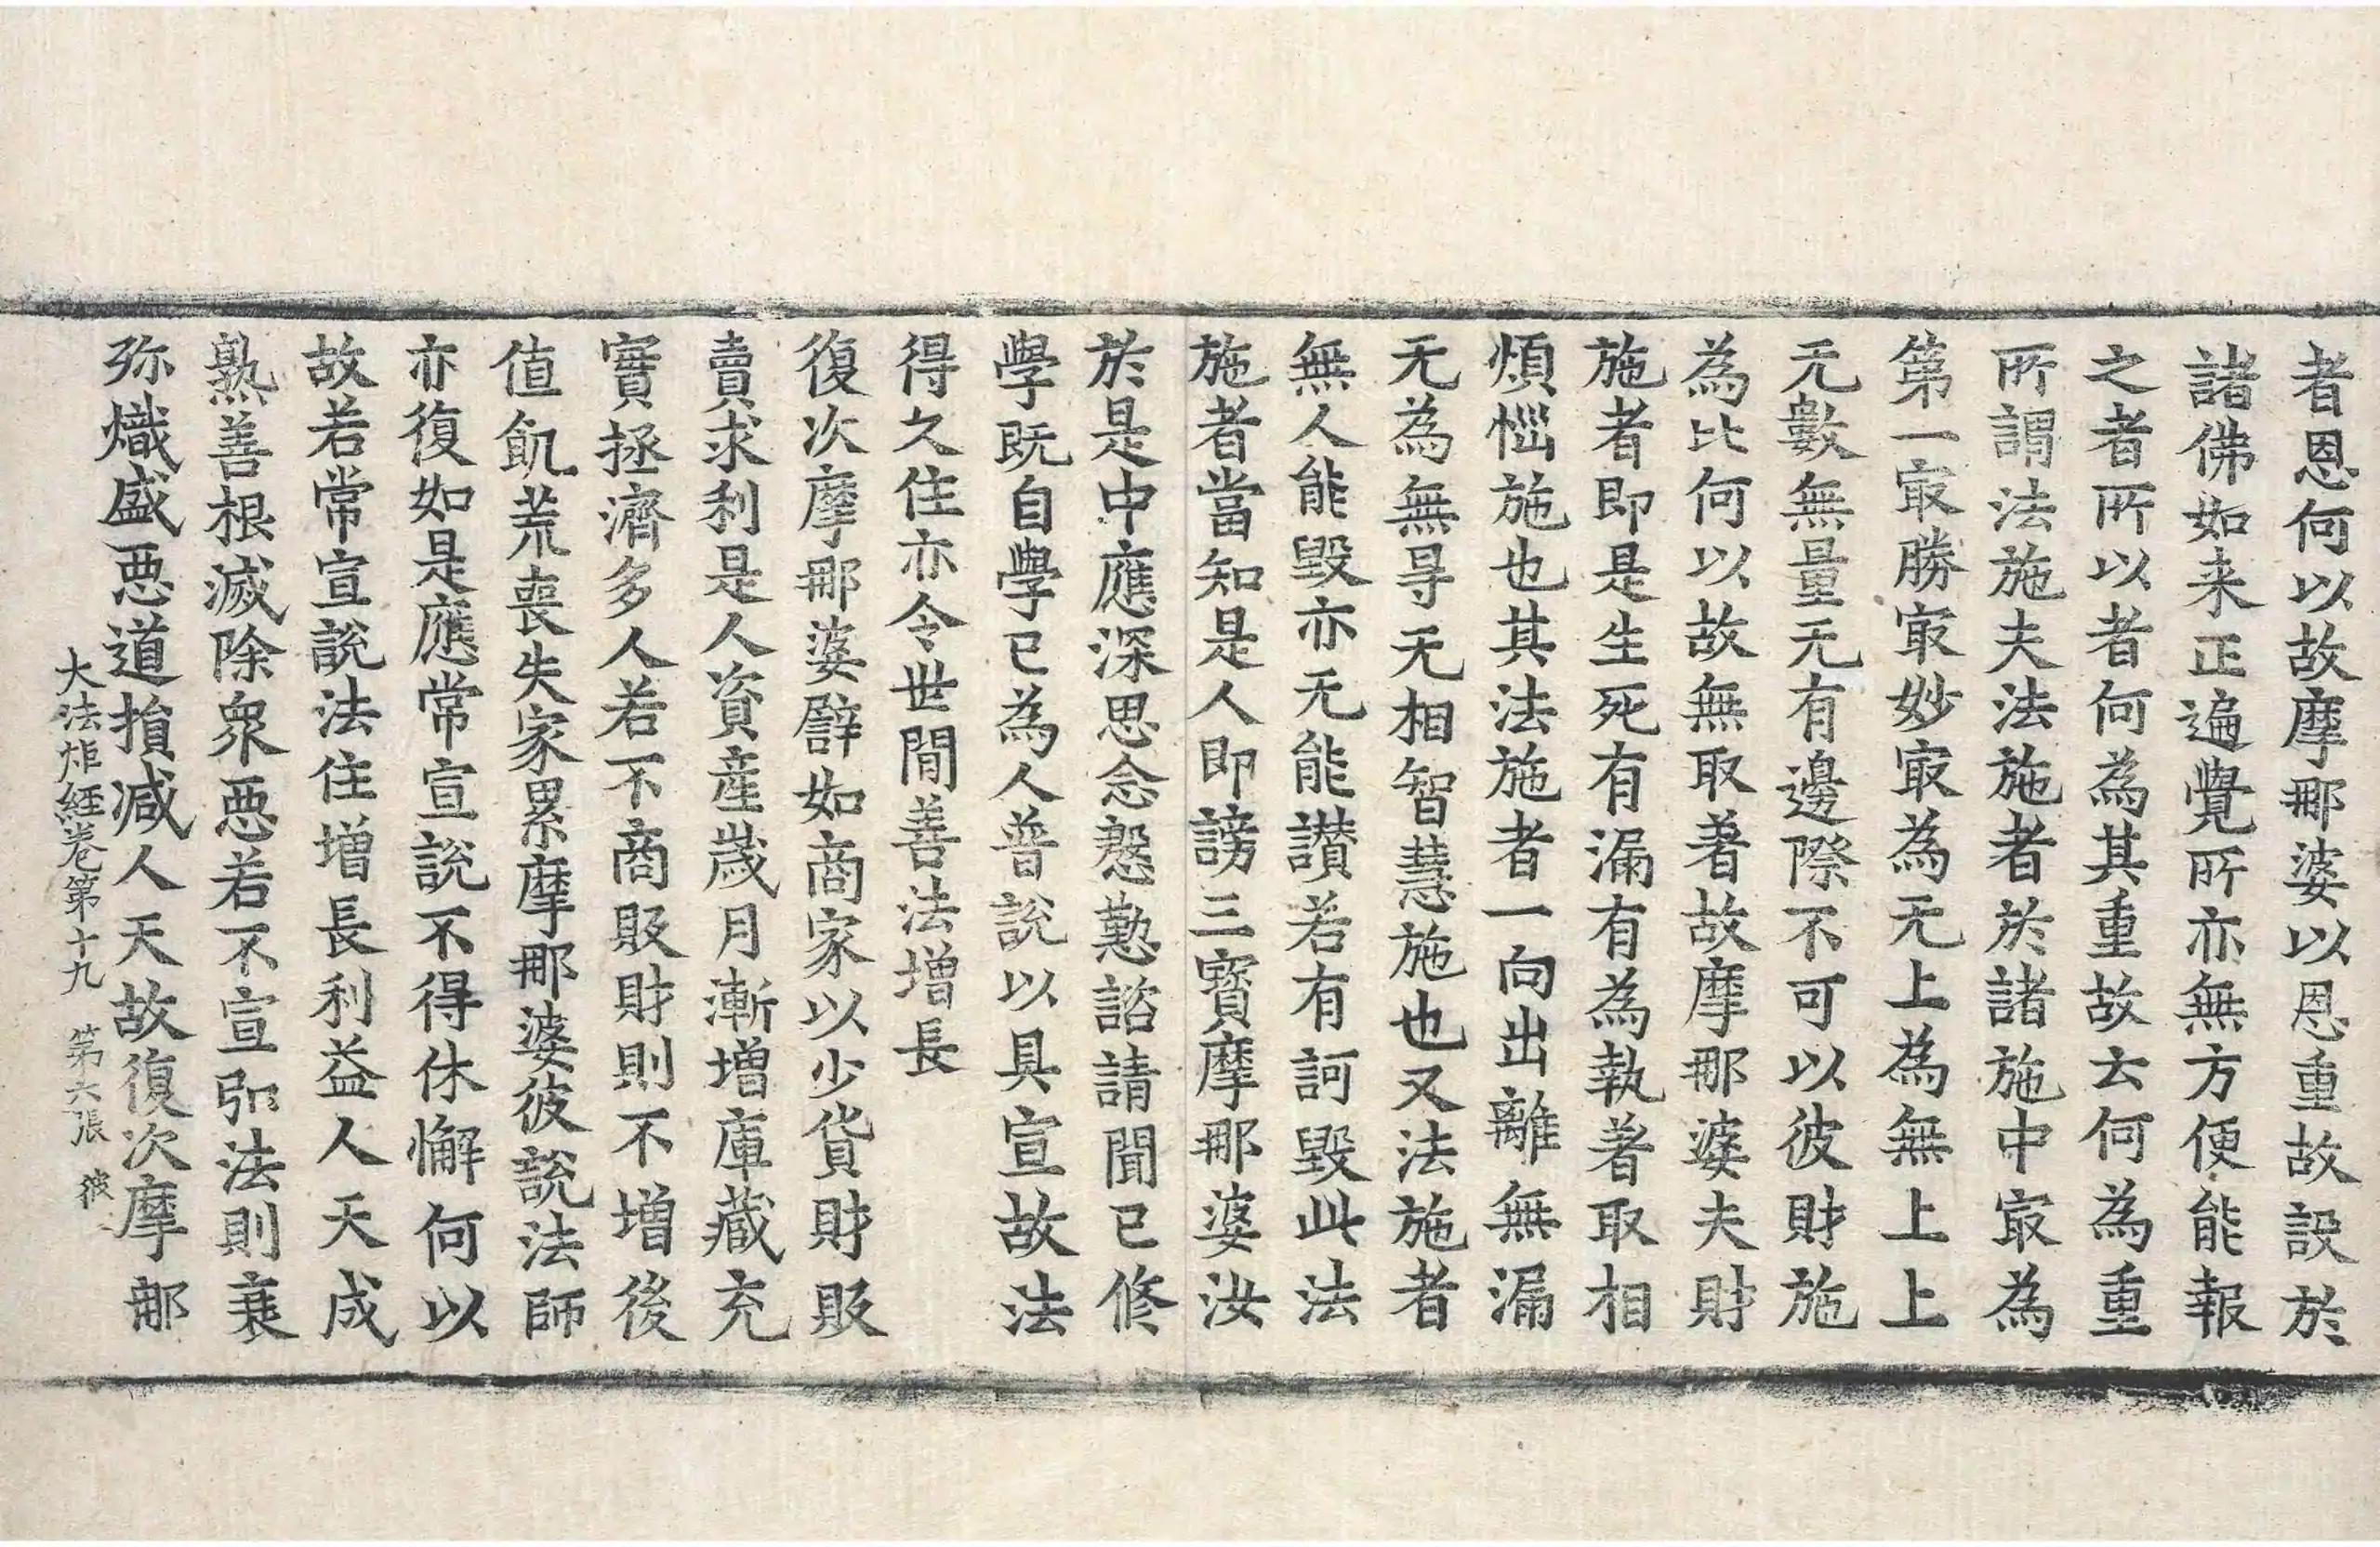 者恩何以故摩那婆以恩重故設於
諸佛如来正遍覺所亦無方便能報
之者所以者何為其重故云何為重
所謂法施夫法施者於諸施中㝡為
第一㝡勝㝡妙㝡為无上為無上上
无數無量无有邊際不可以彼財施
為比何以故無取著故摩那婆夫財
施者即是生死有漏有為執著取相
煩惱施也其法施者一向出離無漏
无為無㝵无相智慧施也又法施者
無人能毀亦无能讃若有訶毀此法
施者當知是人即謗三寳摩那婆汝
於是中應深思念慇懃諮請聞已修
學既自學已為人普說以具宣故法
得久住亦令世間善法增長
復次摩那婆譬如商家以少貨財販
賣求利是人資産歲月漸增庫藏充
實拯濟多人若不商販財則不增後
值飢荒喪失家累摩那婆彼說法師
亦復如是應常宣說不得休懈何以
故若常宣說法住增長利益人天成
熟善根滅除衆惡若不宣引法則衰
弥熾盛惡道損减人天故復次摩那
大法炬經卷第十九 第六張 彼